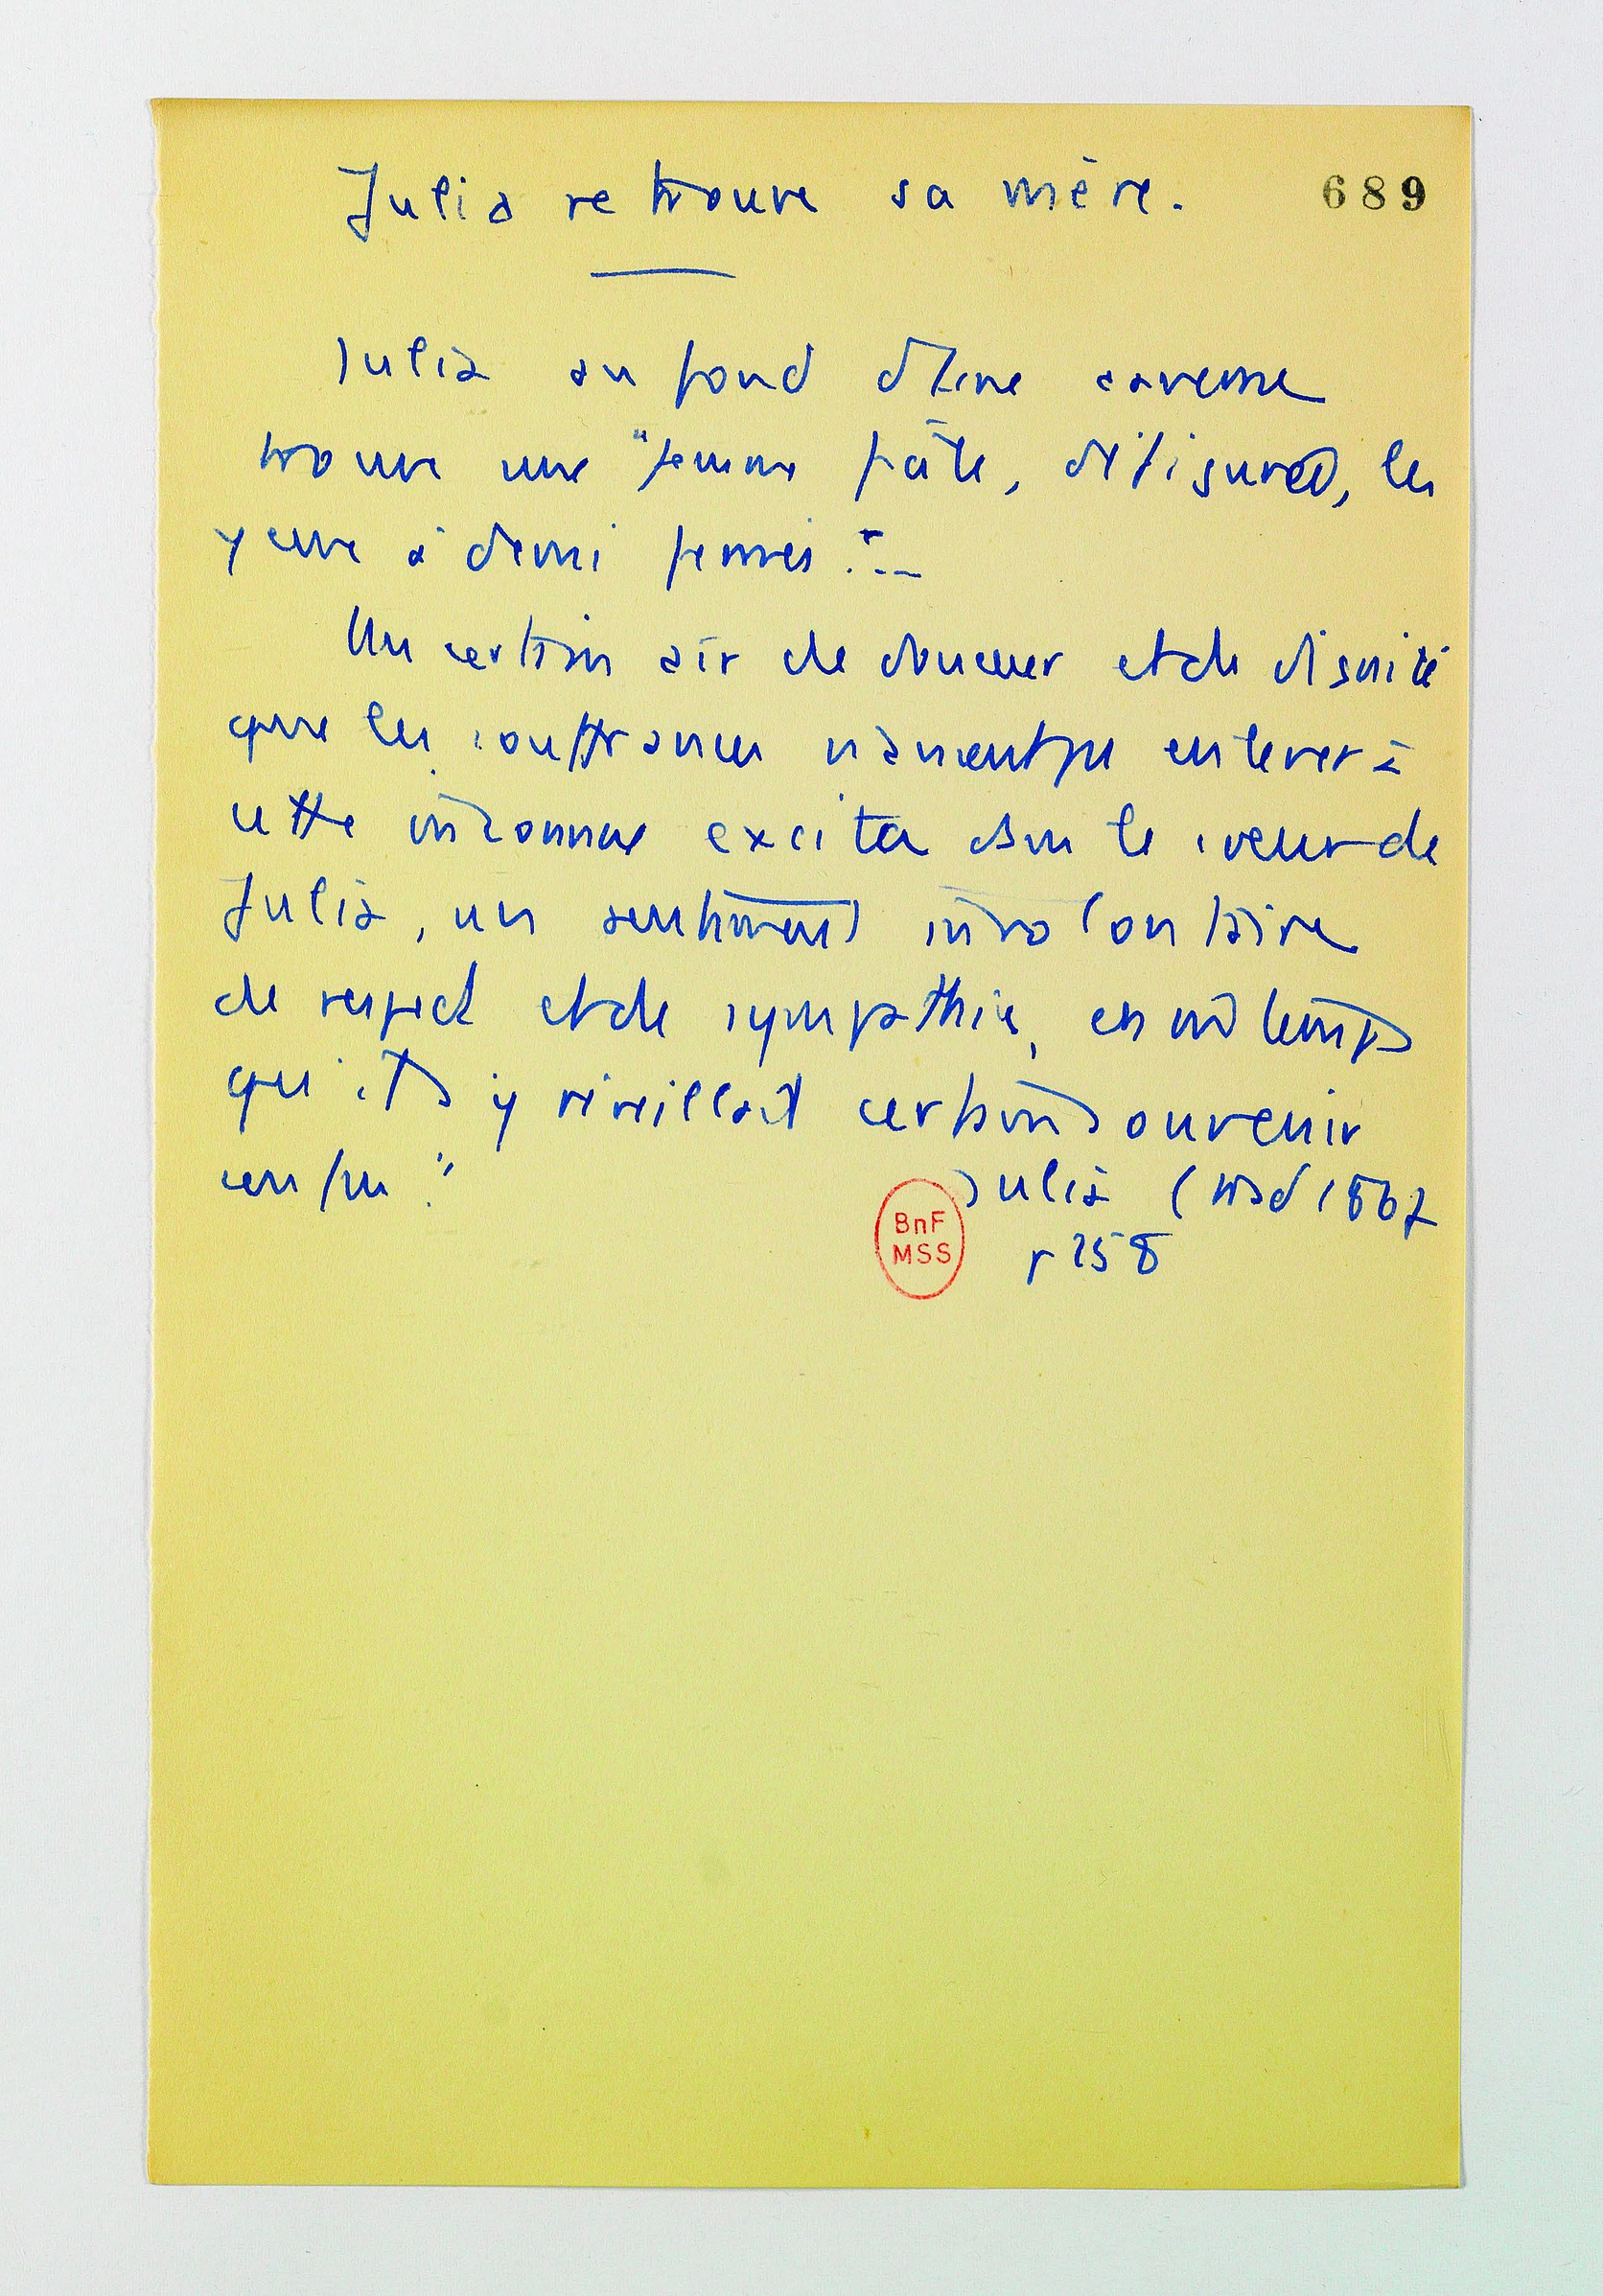 Julia retrouve sa mère.
689
Julia au fond d'une caverne
trouve une "femme pâle, défigurée, les
yeux à demi fermés"...
Un certain air de douceur et de dignité
que les souffrances n'avaient pu enlever à
cette inconnue excita dans le coeur de
Julia, un sentiment involontaire
de respect et de sympathie, en m̂ temps
qu'il y réveillait certain souvenir
confus."
Julia (trad 1867
p 258
BnF
MSS